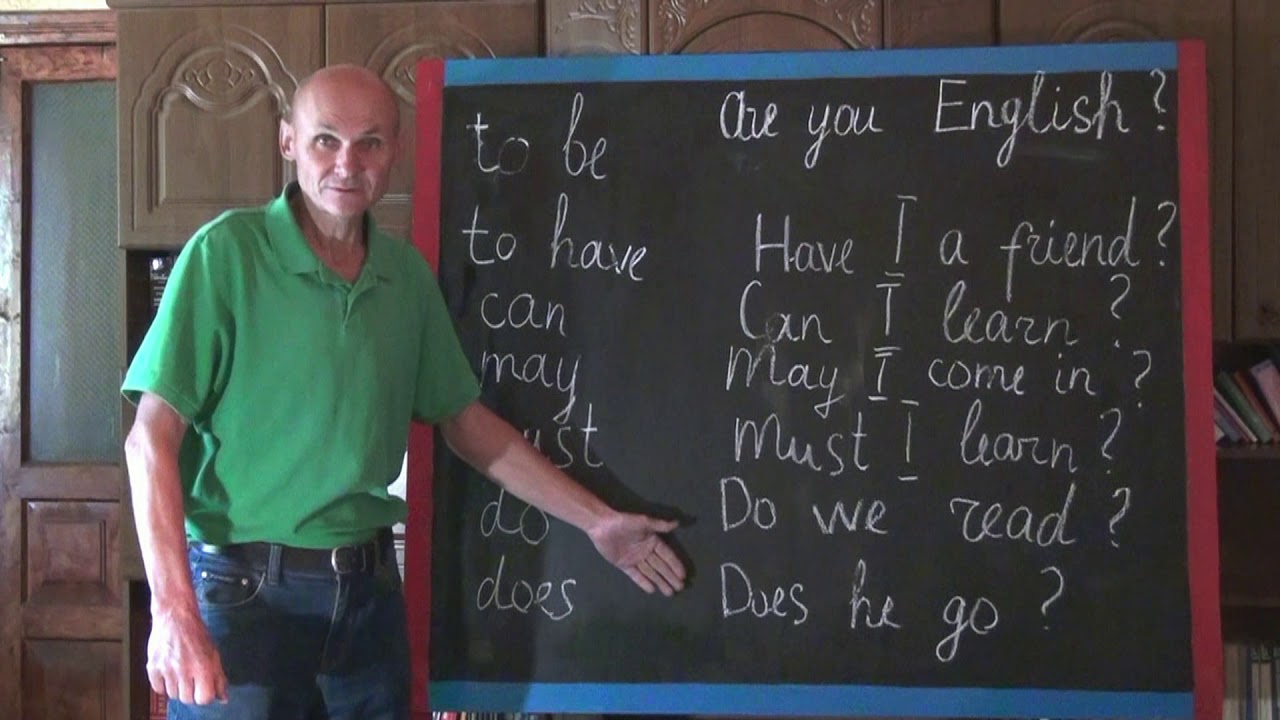 to be Are you English?
to have Have I a friend?
can Can I learn?
may May I come in?
ust Must I learn?
do Do we read?
does Does he go?